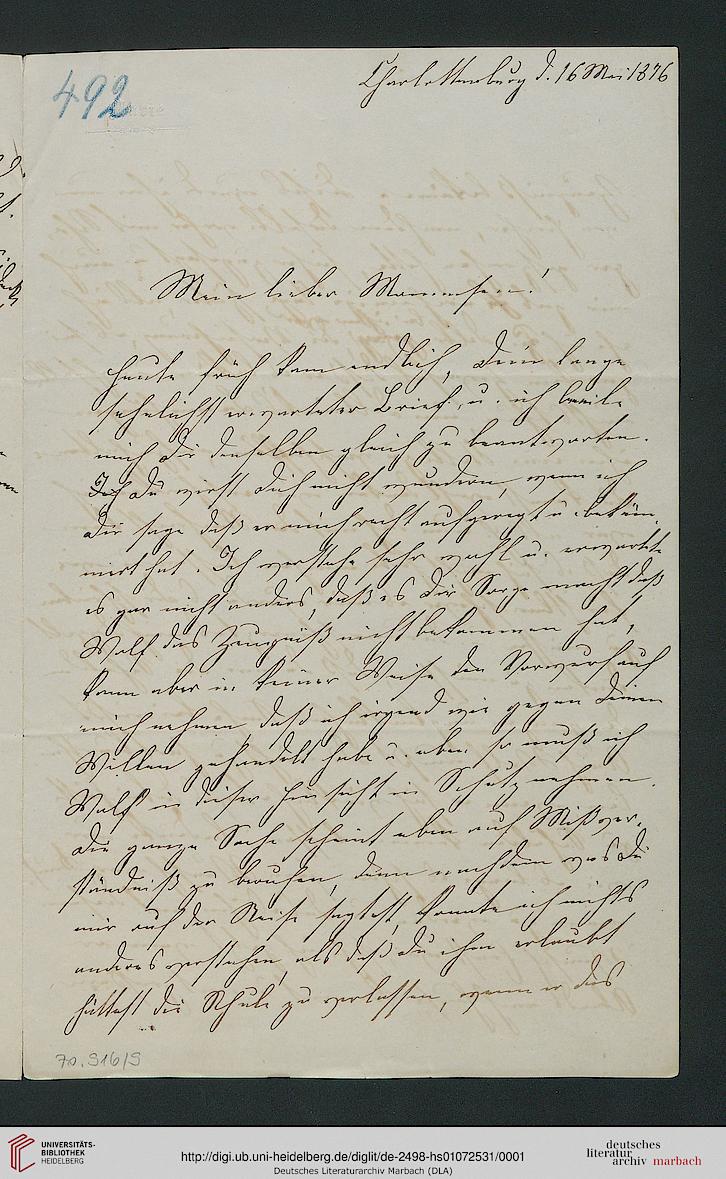 492
Charlottenburg d. 16 Mai 1876
Mein lieber Mommsen!
Heute früh kam endlich, Dein lange
sehnlichst erwarteter Brief, u. ich beeile
mich Dir denselben gleich zu beantworten.
Du wirst Dich nicht wundern, wenn ich
Dir sage daß er mich recht aufgeregt u. beküm
mert hat. Ich verstehe sehr wohl u. erwartete
es gar nicht anders, daß es Dir Sorge macht daß
Wolf das Zeugniß nicht bekommen hat,
kann aber in keiner Weise den Vorwurf auf
mich nehmen daß ich irgend wie gegen Deinen
Willen gehandelt habe u. eben so muß ich
Wolf in dieser Hinsicht in Schutz nehmen.
Die ganze Sache scheint eben auf Mißver-
ständniß zu beruhen, denn nachdem was Du
mir auf der Reise sagtest, konnte ich nichts
anderes verstehen, als daß Du ihm erlaubt
hättest die Schule zu verlassen, wenn er das
70.916/9
UNIVERSITÄTS-
BIBLIOTHEK
HEIDELBERG
http://digi.ub.uni-heidelberg.de/diglit/de-2498-hs01072531/0001
Deutsches Literaturarchiv Marbach (DLA)
deutsches
literatur
archiv marbach